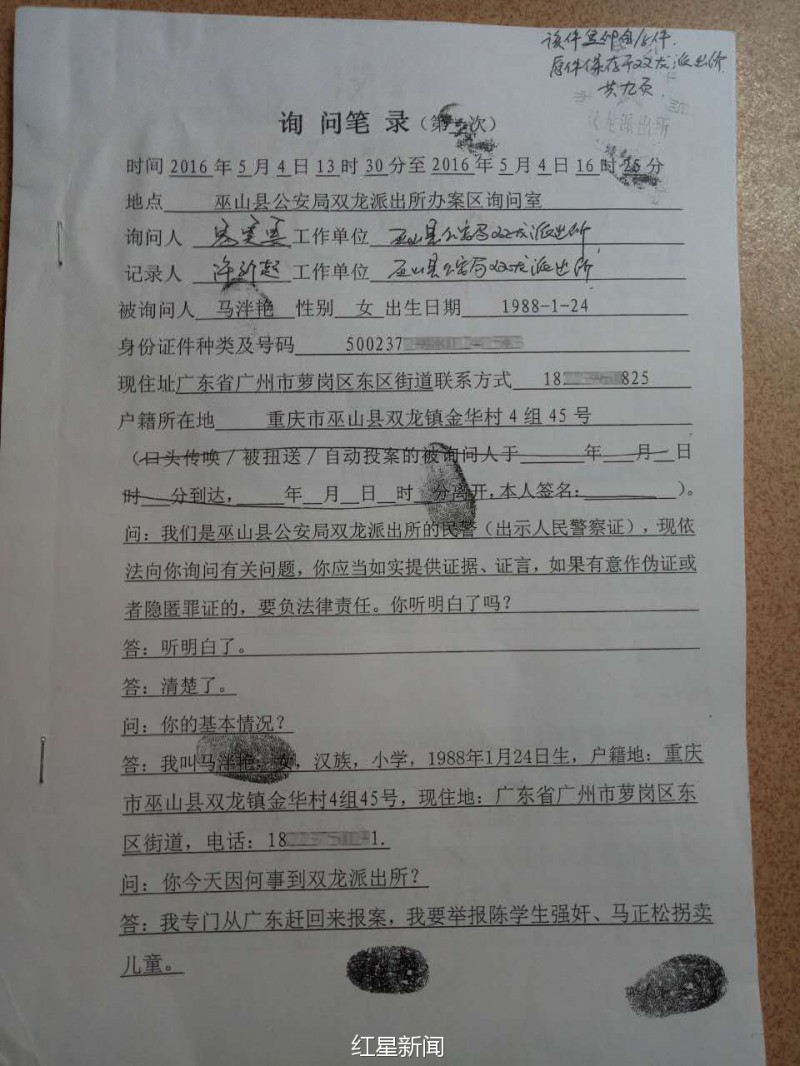 该件复印自原件.
原件保存于双龙派出所
共九页.
龙派出所
询 问笔 录(第 次)
时间 2016 年 5 月 4 日 13 时 30 分至 2016 年 5 月 4 日 16 时 25 分
地点 巫山县公安局双龙派出所办案区询问室
询问人 工作单位 巫山县公安局双龙派出所
记录人 工作单位 巫山县公安局双龙派出所
被询问人 马泮艳 性别 女 出生日期 1988-1-24
身份证件种类及号码 500237
现住址 广东省广州市萝岗区东区街道 联系方式 18 825
户籍所在地 重庆市巫山县双龙镇金华村 4 组 45 号
(口头传唤/被扭送/自动投案的被询问人于 年 月 日
时 分到达, 年 月 日 时 分离开,本人签名: )。
问:我们是巫山县公安局双龙派出所的民警(出示人民警察证),现依
法向你询问有关问题,你应当如实提供证据、证言,如果有意作伪证或
者隐匿罪证的,要负法律责任。你听明白了吗?
答:听明白了。
答:清楚了。
问:你的基本情况?
答:我叫马泮艳,女,汉族,小学,1988年1月24日生,户籍地:重庆
市巫山县双龙镇金华村4组45号,现住地:广东省广州市萝岗区东
区街道,电话:18 1.
问:你今天因何事到双龙派出所?
答:我专门从广东赶回来报案,我要举报陈学生强奸、马正松拐卖
儿童。
红星新闻